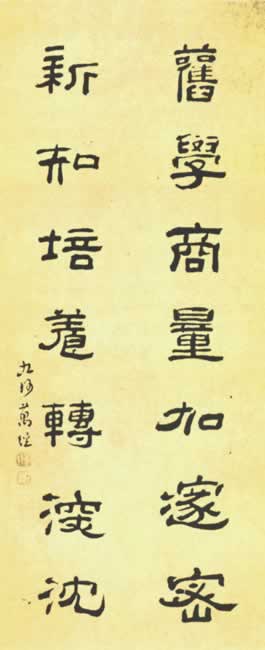 舊學商量加邃密
新知培養轉深沈
九沙萬經